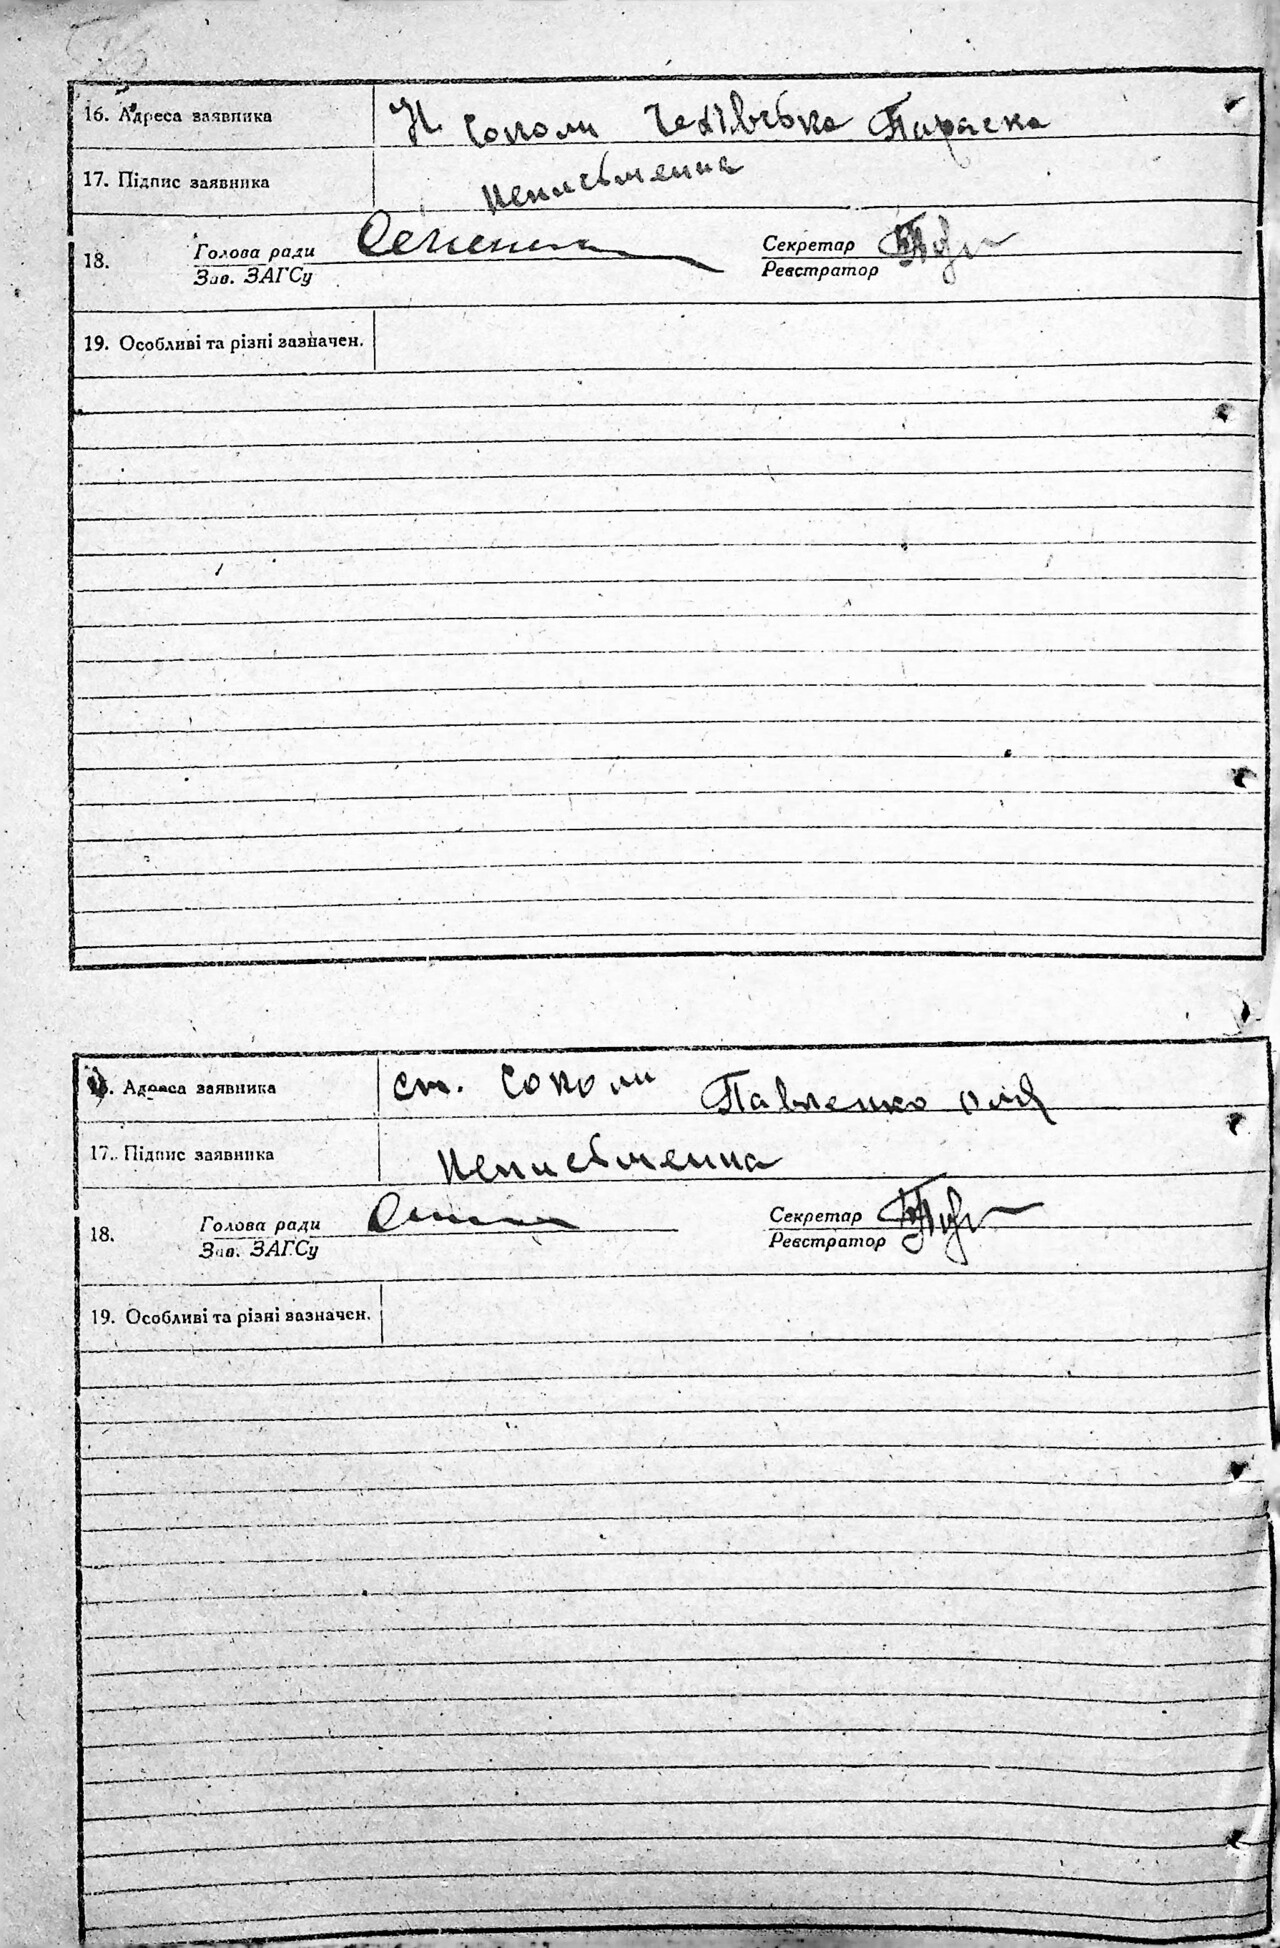 16. Адреса заявника Н Соколи Чехівська Параска
17. Підпис заявника неписьменна
18. Голова ради Секретар
Зав. ЗАГСу Реєстратор
19. Особливі та різні зазначен.
Адреса заявника ст. Соколи Павленко Олія
17. Підпис заявника неписьменна
18. Голова ради Секретар
Зав. ЗАГСу Реєстратор
19. Особливі та різні зазначен.